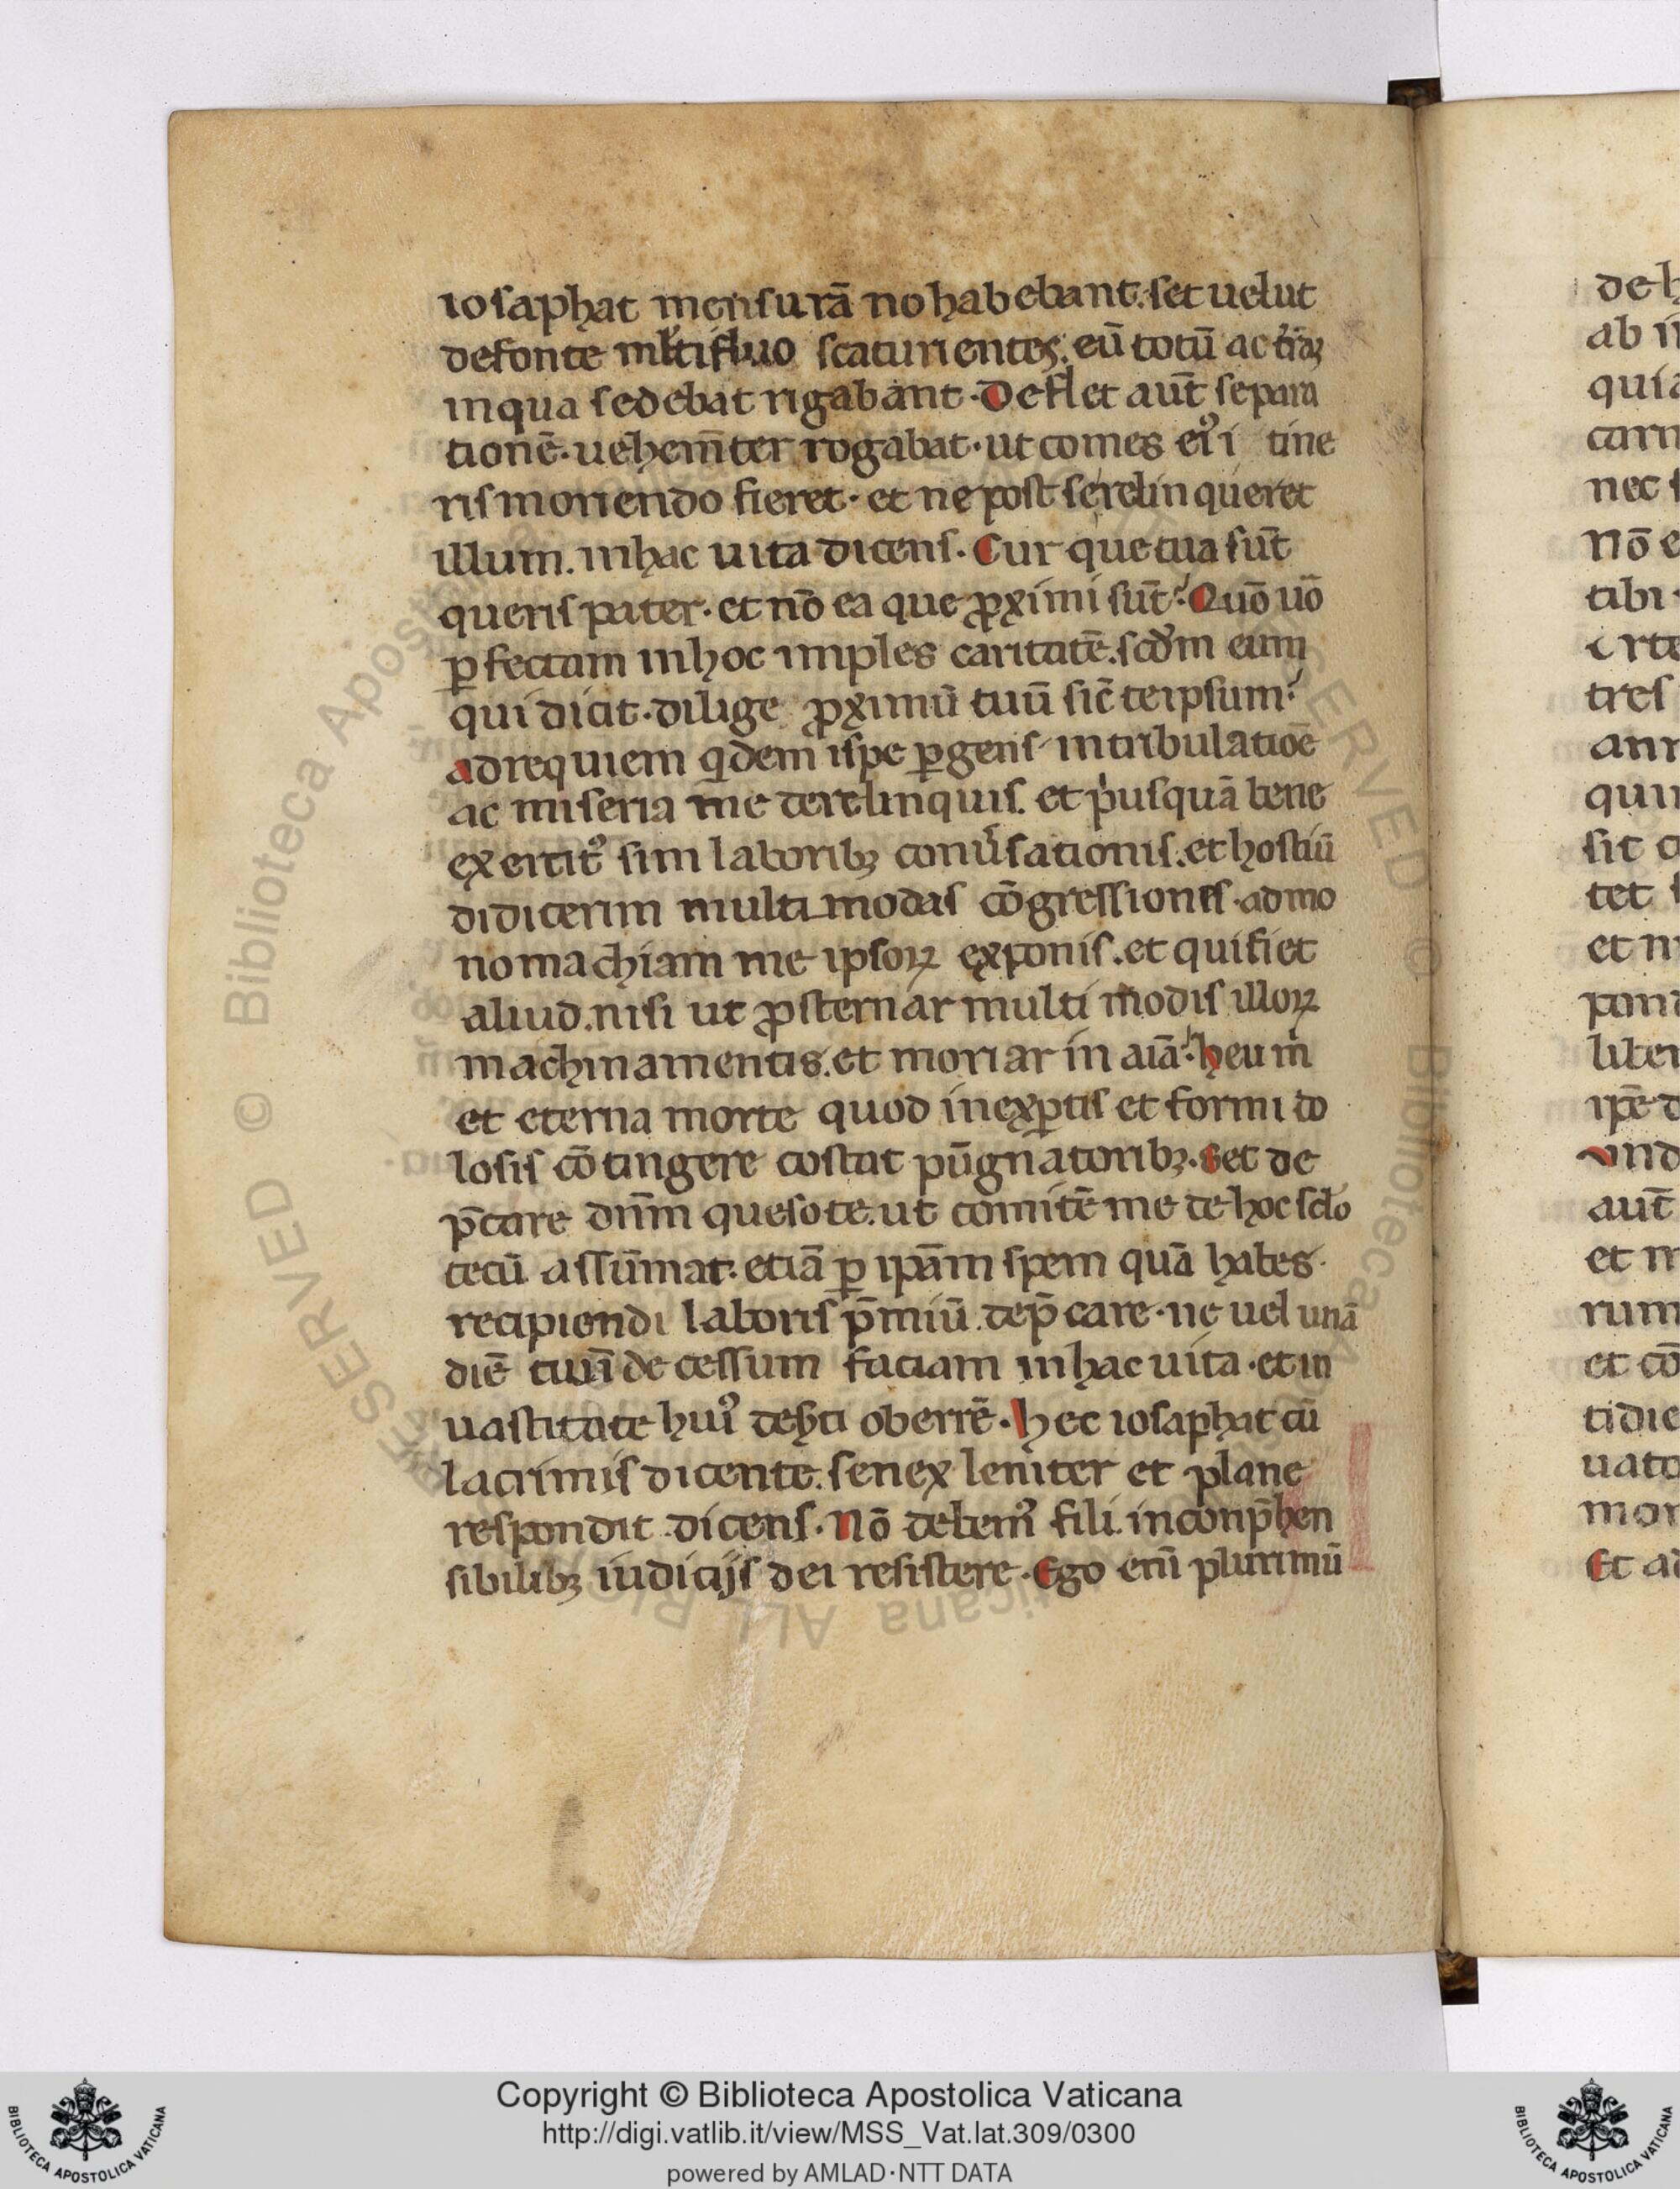 iosaphat mensurā no habebant. set uelut
de fonte mĺtifluo scaturientes. eū totū ac t̄raꝫ
in qua sedebat rigabant. Deflet aut̄ separa
tionē. uehem̄ter rogabat. ut comes eiꝰ i tine
ris moriendo fieret. et ne post se relinqueret
illum. in hac uita dicens. Cur que tua sūt
queris pater. et nō ea que ꝓximi sūt? Quō uō
ꝑfectam in hoc imples caritatē. scd̄m eum
qui dicit. dilige ꝓximū tuū sic̄ te ipsum?
ad requiem qͥdem ispe ꝑgens in tribulatiōe
ac miseria me derelinquis. et pͥusquā bene
exercitꝰ sim laboribꝫ conūsationis. et hostiū
didicerim multimodas cōgressiones. ad mo
nomachiam me ipsoꝝ exponis. et qui fiet
aliud. nisi ut ꝓsternar multimodis illoꝝ
machinamentis. et moriar in aīa? heu m̄
et eterna morte quod inexꝑtis et formido
losis cōtingere costat pūgnatoribꝫ. Set de
p̄care dn̄m queso te. ut comitē me de hoc sclo
tecū assūmat. etiā ꝑ ip̄am spem quā habes
recipiendi laboris p̄miū. dep̄care. ne uel unā
diē tuū decessum faciam in hac uita. et in
uastitate huiꝰ deẜti oberrē. Hec iosaphat cū
lacrimis dicente. senex leniter et plane
respondit dicens. Nō debemꝰ fili. inconp̄hen
sibilibꝫ iudicijs dei resistere. Ego enī plurimū
de h
ab ī
quia
carn
nec s
nō e
tibi
tres
ann
sit
tet
et m
pon
liber
ip̄e d
vnd
aut̄
et m
rum
et cō
tidie
uato
mor
Et ad
© Biblioteca Apostolica Vaticana ALL RIGHTS RESERVED
Copyright © Biblioteca Apostolica Vaticana
http://digi.vatlib.it/view/MSS_Vat.lat.309/0300
powered by AMLAD·NTT DATA
BIBLIOTECA APOSTOLICA VATICANA
BIBLIOTECA APOSTOLICA VATICANA